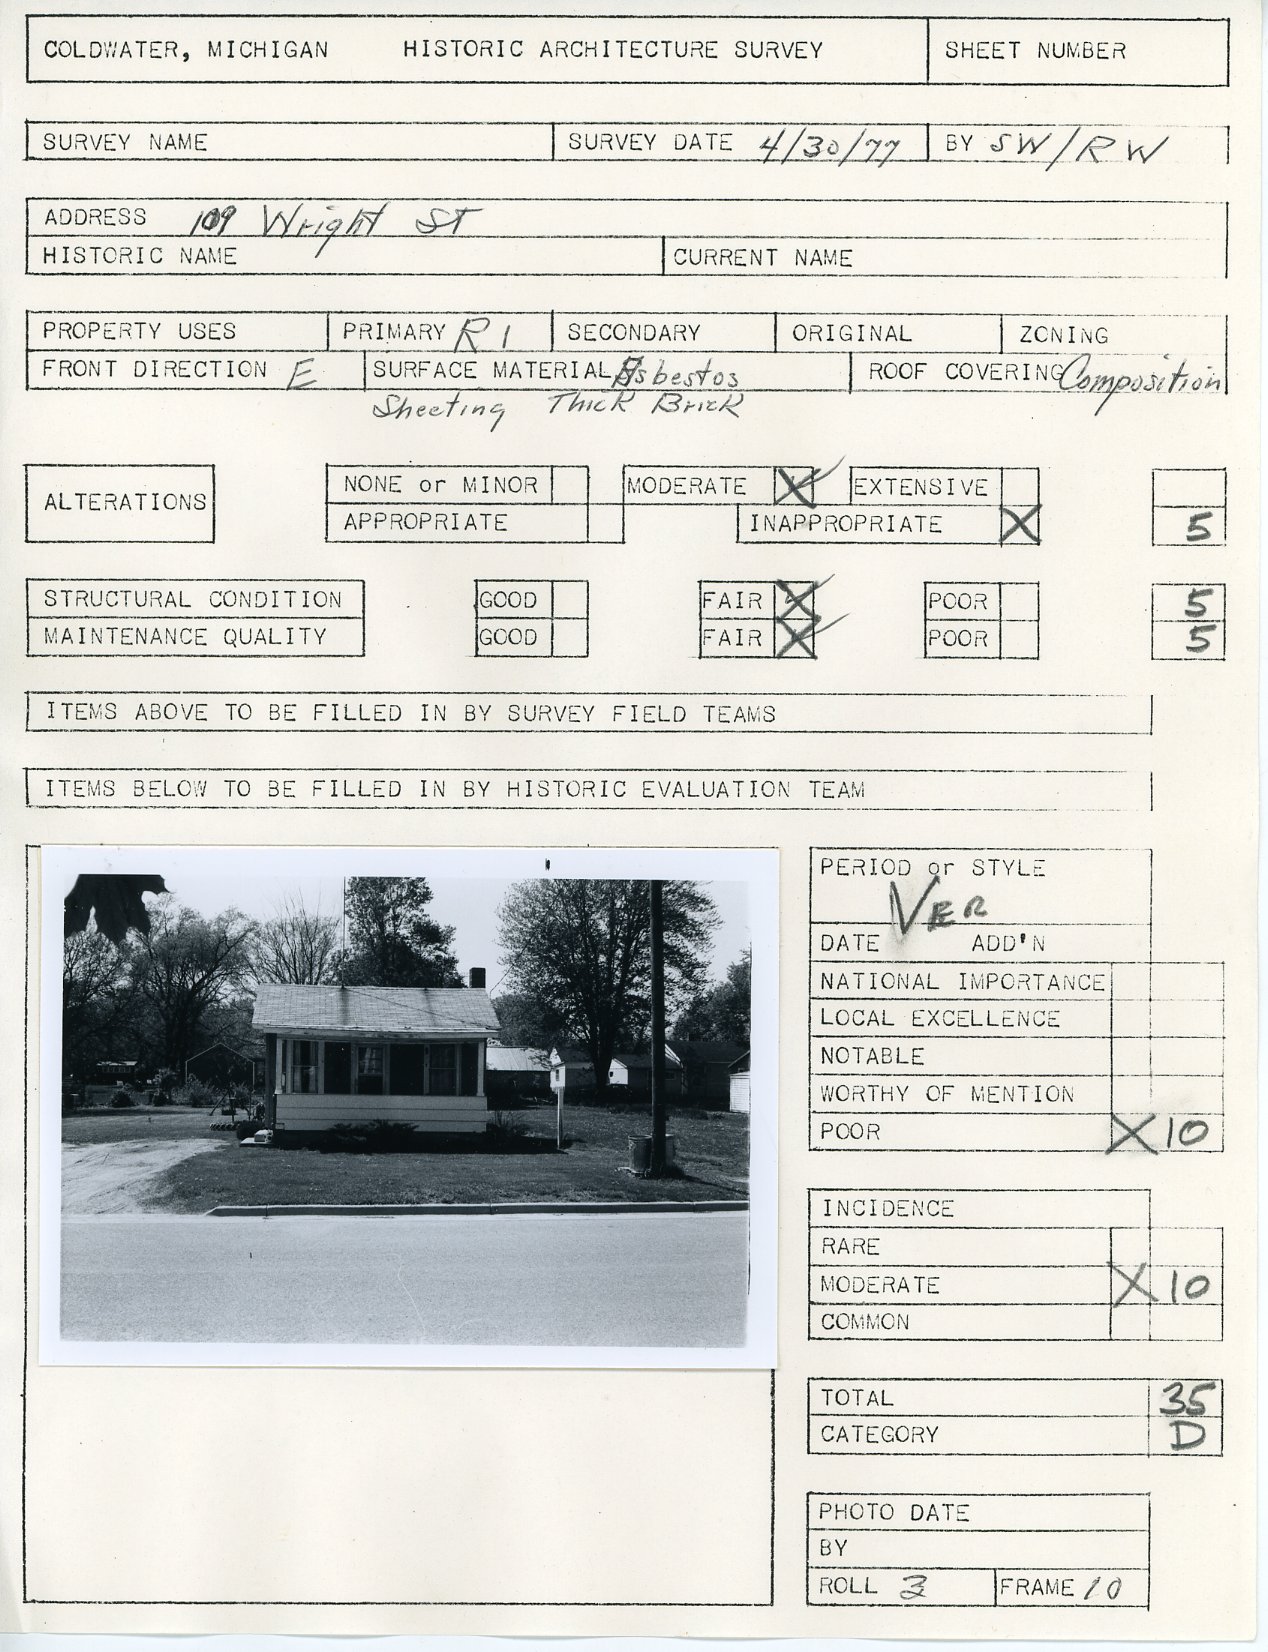 COLDWATER, MICHIGAN HISTORIC ARCHITECTURE SURVEY SHEET NUMBER
SURVEY NAME SURVEY DATE 4/30/77 BY SW/RW
ADDRESS 109 Wright ST
HISTORIC NAME CURRENT NAME
PROPERTY USES PRIMARY R1 SECONDARY ORIGINAL ZONING
FRONT DIRECTION E SURFACE MATERIAL Asbestos ROOF COVERING Composition
Sheeting Thick Brick
ALTERATIONS
NONE or MINOR MODERATE X EXTENSIVE
APPROPRIATE INAPPROPRIATE X 5
STRUCTURAL CONDITION GOOD FAIR X POOR 5
MAINTENANCE QUALITY GOOD FAIR X POOR 5
ITEMS ABOVE TO BE FILLED IN BY SURVEY FIELD TEAMS
ITEMS BELOW TO BE FILLED IN BY HISTORIC EVALUATION TEAM
PERIOD or STYLE
VER
DATE ADD'N
NATIONAL IMPORTANCE
LOCAL EXCELLENCE
NOTABLE
WORTHY OF MENTION
POOR X 10
INCIDENCE
RARE
MODERATE X 10
COMMON
TOTAL 35
CATEGORY D
PHOTO DATE
BY
ROLL 3 FRAME 10